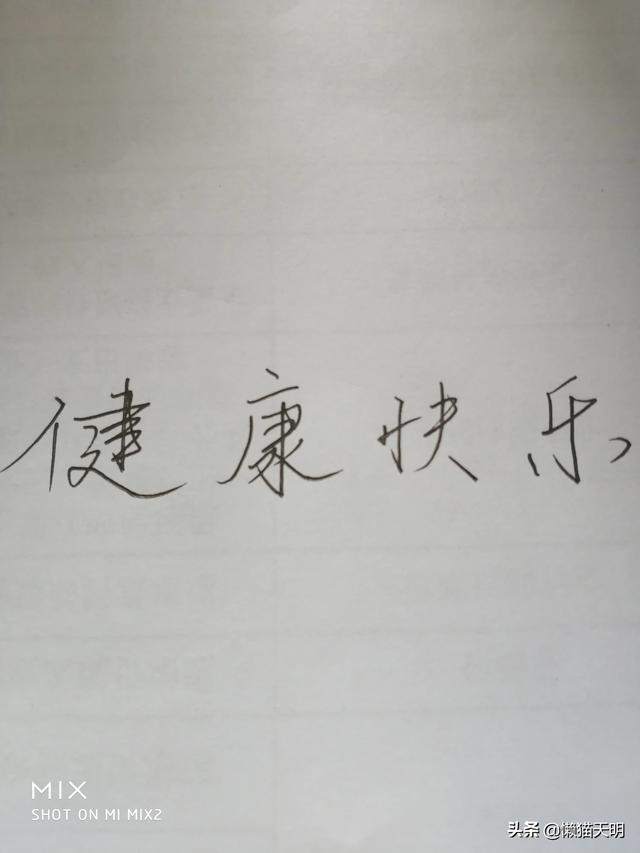 健康快乐
MIX
SHOT ON MI MIX2
头条 @懒猫天明